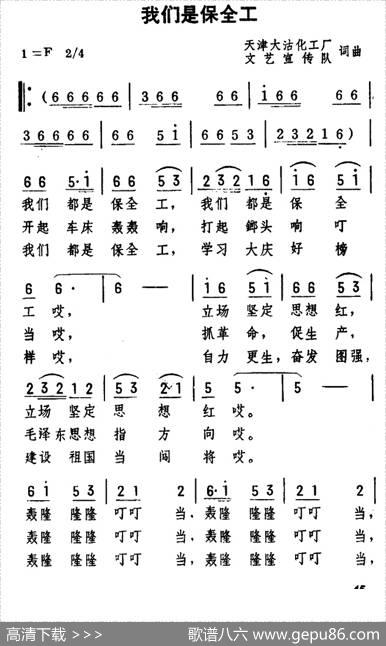 我们是保全工
1=F 2/4
天津大沽化工厂
文艺宣传队 词曲
(6 6 6 6 6 | 3 6 6 6 6 | 6 6 i 6 6 | 6 6 6 6
3 6 6 6 6 6 | 6 6 5 i | 6 6 5 3 | 2 3 2 1 6) |
6 6 5·i | 6 6 5 3 | 2 3 2 1 6 | i 6 5 i |
我们 都是 保全 工, 我们 都是 保 全
开起 车床 轰轰 响, 打起 鎯头 响 叮
我们 都是 保全 工, 学习 大庆 好 榜
6 6· | 6 — | i 6 5 i | 6 6 5 3 |
工 哎, 立场 坚定 思想 红,
当 哎, 抓革 命, 促生 产,
样 哎, 自力 更生, 奋发 图强,
2 3 2 1 2 | 5 3 2·1 | 5 5· | 5 — |
立场 坚定 思 想 红 哎。
毛泽东思想 指 方 向 哎。
建设 祖国 当 闯 将 哎。
6 i 5 3 | 2 1 2 | 6·i 5 3 | 2 1 2 |
轰隆 隆隆 叮叮 当, 轰隆 隆隆 叮叮 当,
轰隆 隆隆 叮叮 当, 轰隆 隆隆 叮叮 当,
轰隆 隆隆 叮叮 当, 轰隆 隆隆 叮叮 当,
高清下载 >>> 歌谱八六 www.gepu86.com